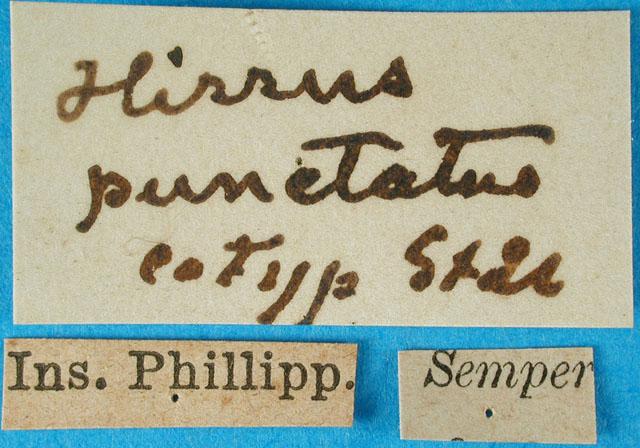 Hirrus
punctatus
cotyp Stål
Ins. Phillipp.
Semper